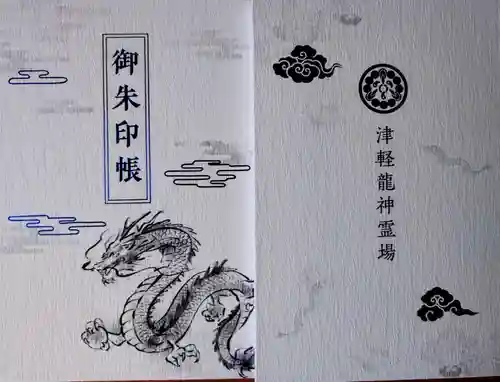 御朱印帳
津軽龍神霊場